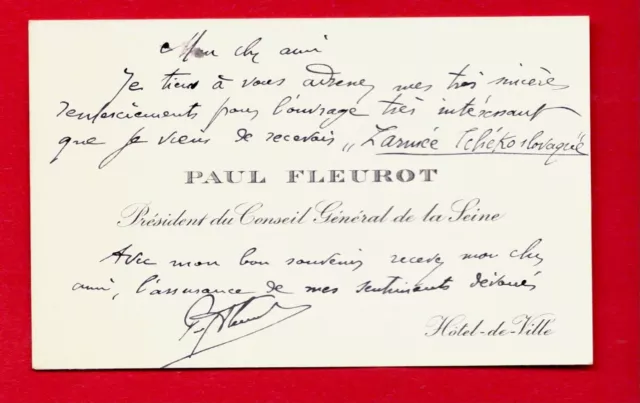 Mon ch ami
Je tiens à vous adresser mes très sincères
remerciements pour l'ouvrage très intéressant
que je viens de recevoir „L'armée Tchéko slovaque
PAUL FLEUROT
Président du Conseil Général de la Seine
Avec mon bon souvenir recevez mon ch
ami, l'assurance de mes sentiments dévoués
P. Fleurot
Hôtel-de-Ville